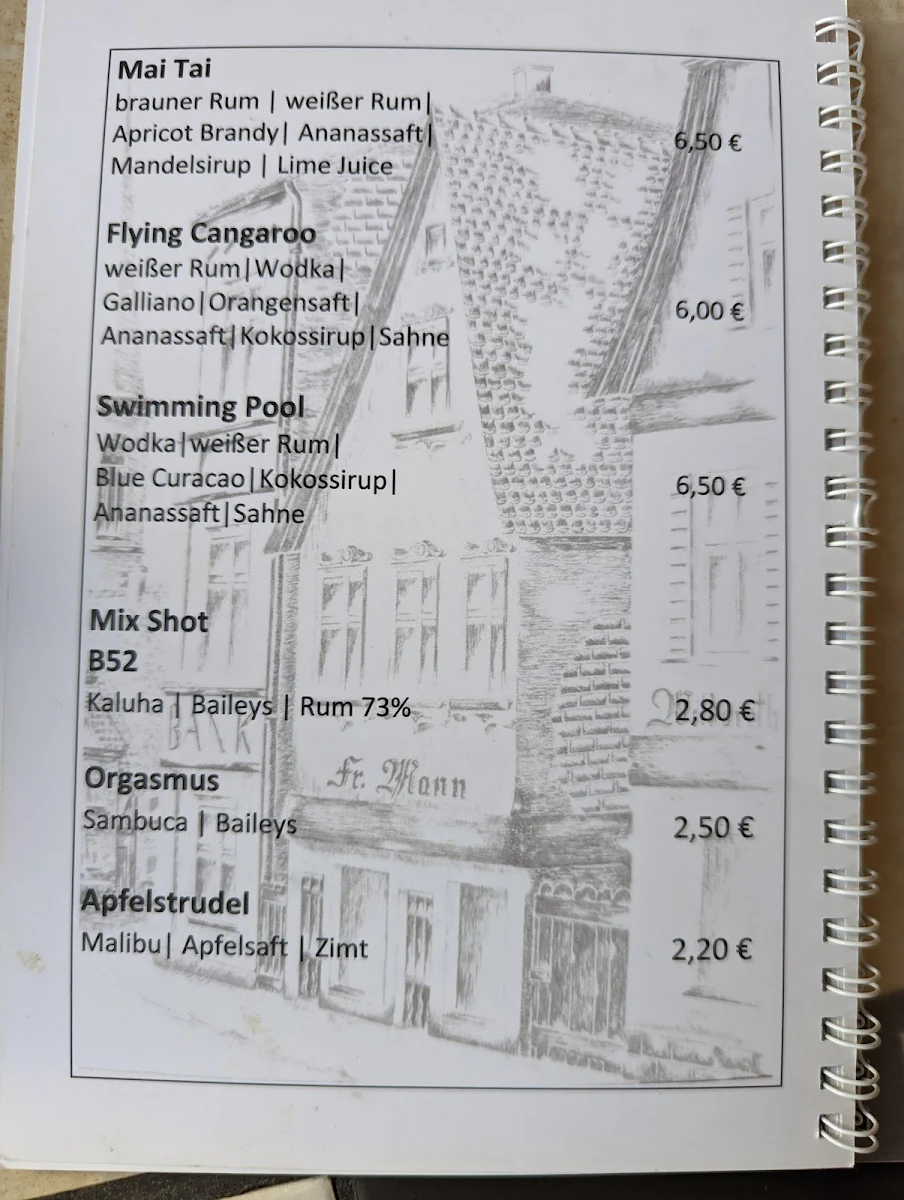 Mai Tai
brauner Rum | weißer Rum|
Apricot Brandy| Ananassaft|
6,50 €
Mandelsirup | Lime Juice
Flying Cangaroo
weißer Rum|Wodka|
Galliano|Orangensaft|
6,00 €
Ananassaft|Kokossirup|Sahne
Swimming Pool
Wodka|weißer Rum|
Blue Curacao|Kokossirup|
6,50 €
Ananassaft|Sahne
Mix Shot
B52
Kaluha | Baileys | Rum 73%
2,80 €
BANK
Fr. Mann
Orgasmus
Sambuca | Baileys
2,50 €
Apfelstrudel
Malibu| Apfelsaft | Zimt
2,20 €